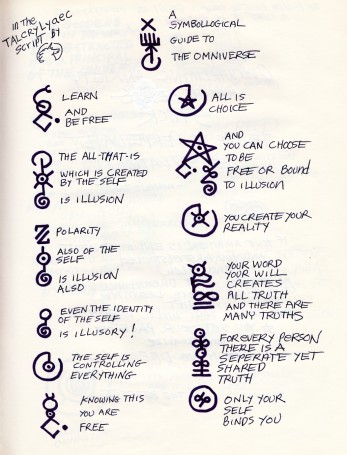 in THE
TALCRYLyaec
SCRIPT BY
A
SYMBOLLOGICAL
GUIDE TO
THE OMNIVERSE
LEARN
AND
BE FREE
THE ALL-THAT-IS
WHICH IS CREATED
BY THE SELF
IS ILLUSION
POLARITY
ALSO OF THE
SELF
IS ILLUSION
ALSO
EVEN THE IDENTITY
OF THE SELF
IS ILLUSORY!
THE SELF IS
CONTROLLING
EVERYTHING
KNOWING THIS
YOU ARE
FREE
ALL IS
CHOICE
AND
YOU CAN CHOOSE
TO BE
FREE OR BOUND
TO ILLUSION
YOU CREATE YOUR
REALITY
YOUR WORD
YOUR WILL
CREATES
ALL TRUTH
AND THERE ARE
MANY TRUTHS
FOR EVERY PERSON
THERE IS A
SEPERATE YET
SHARED
TRUTH
ONLY YOUR
SELF
BINDS YOU